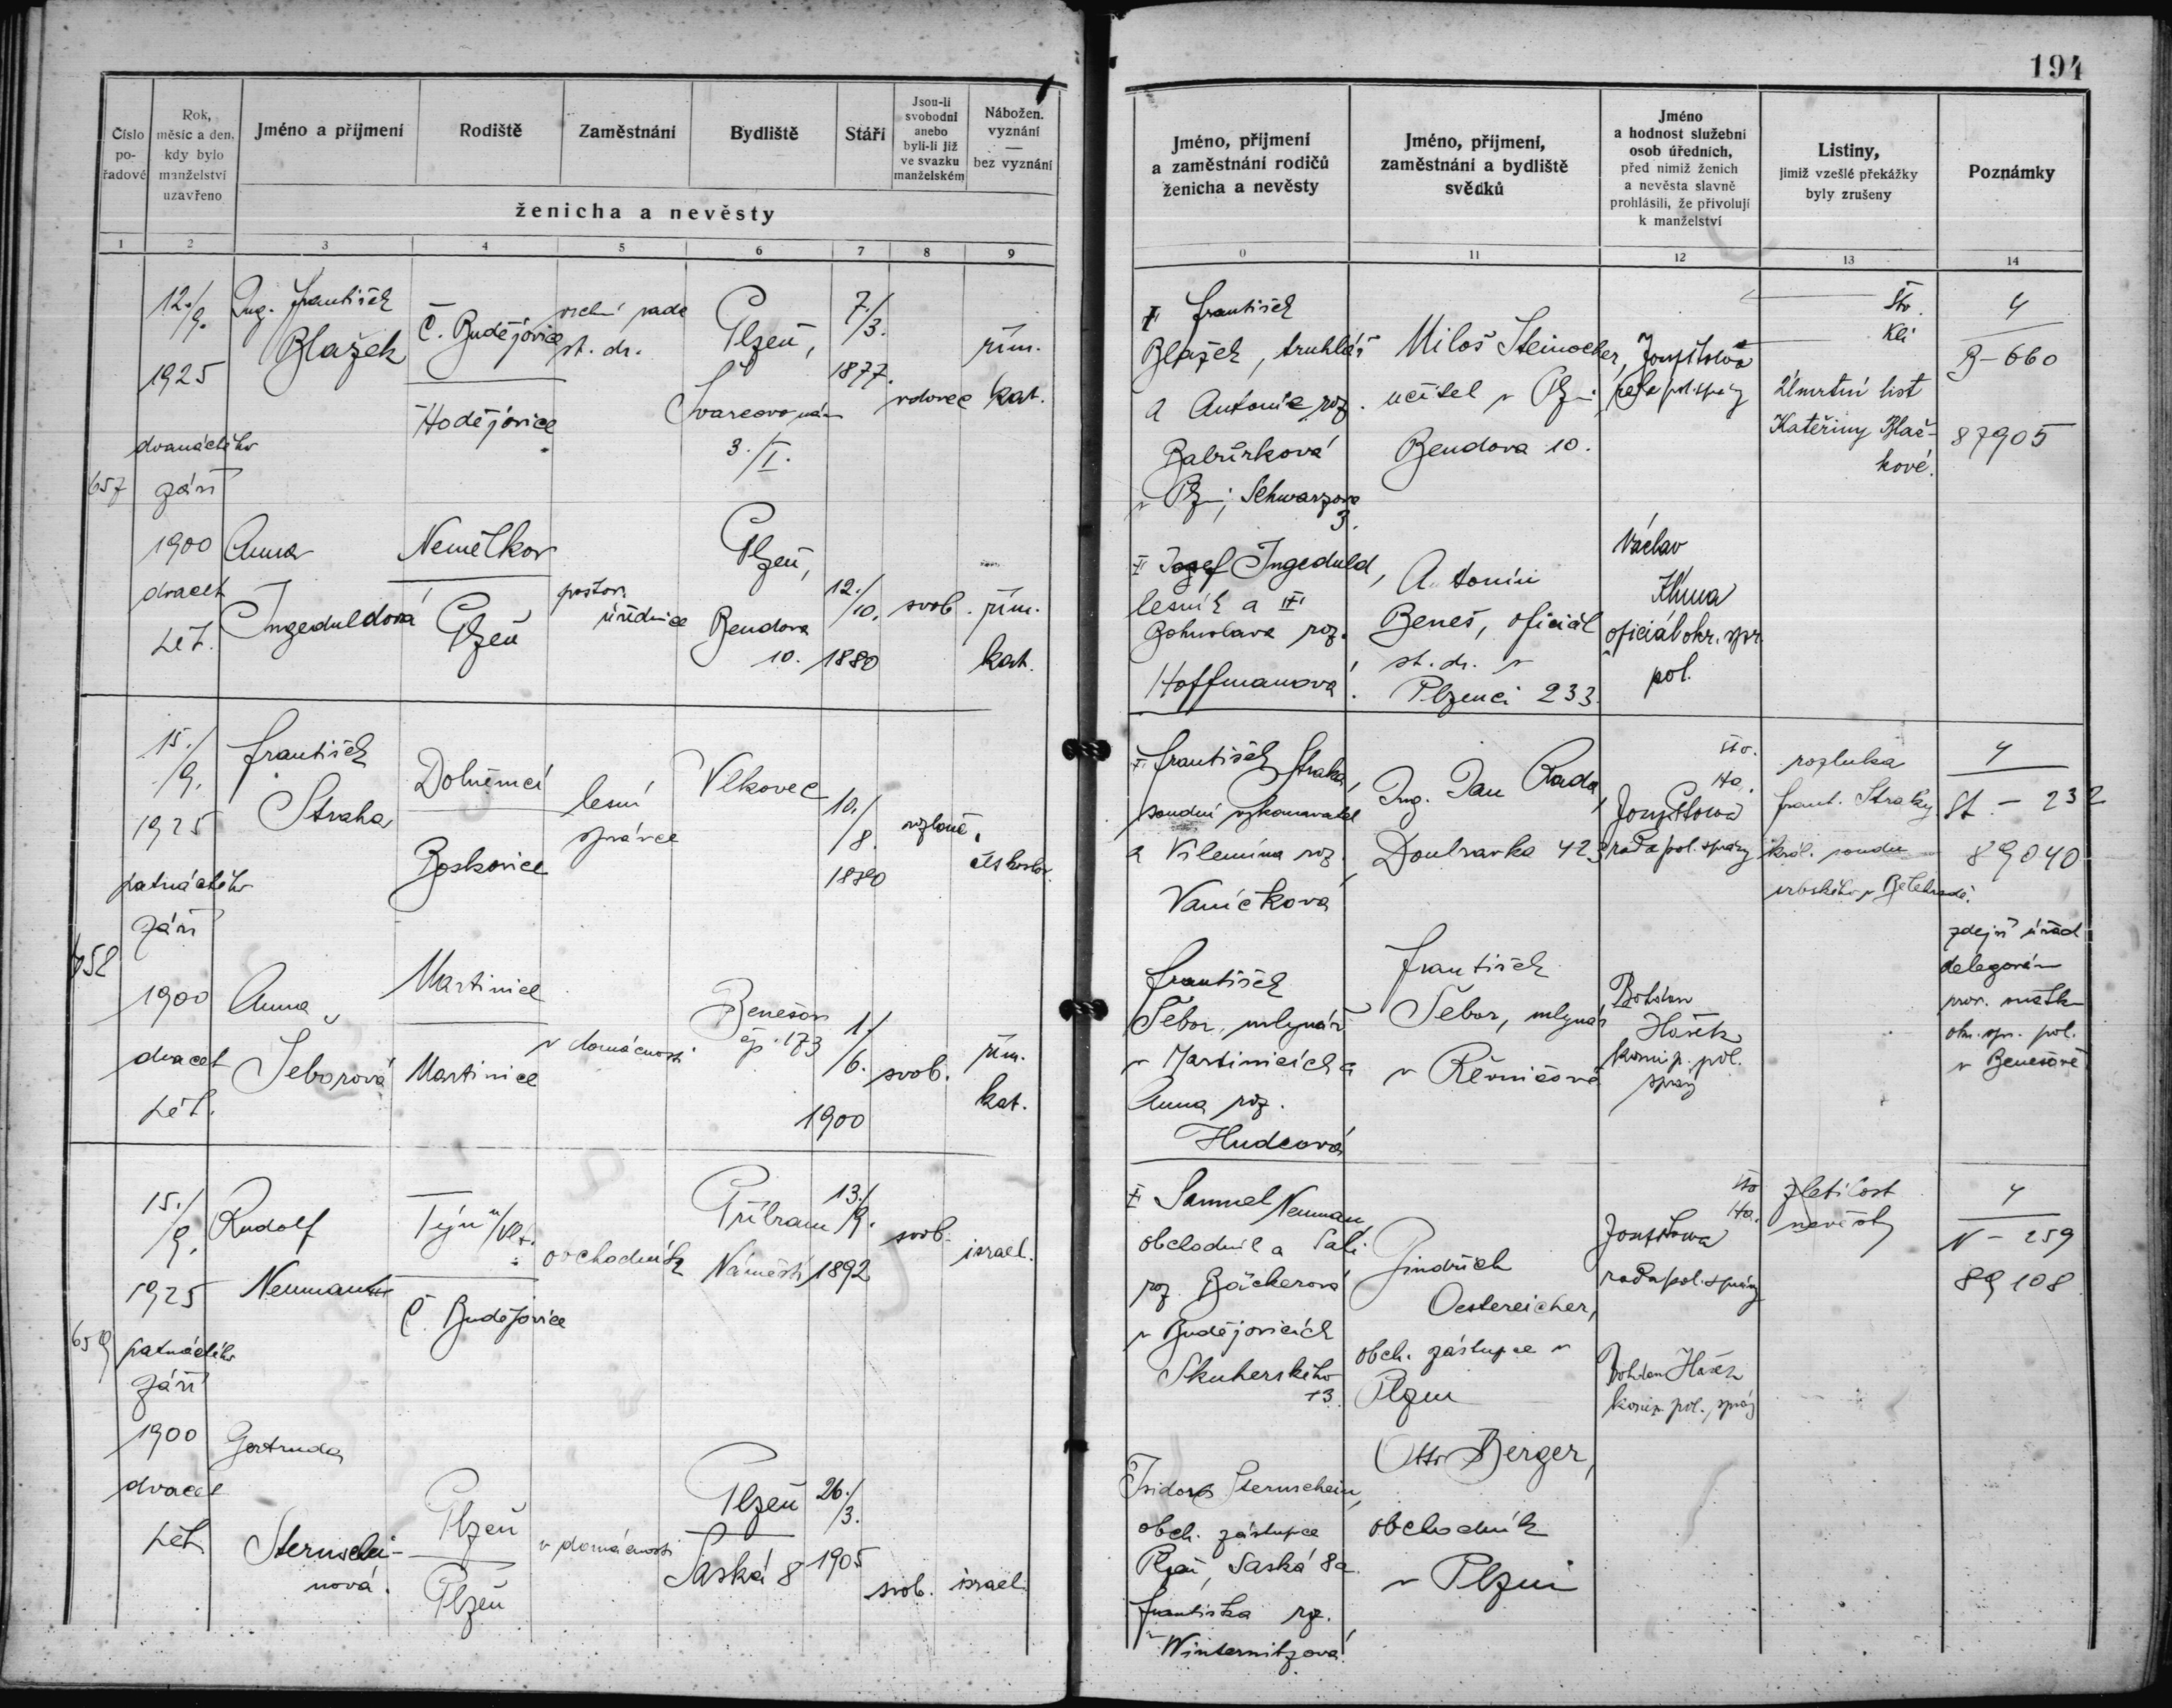 194
Číslo
po-
řadové
Rok,
měsíc a den,
kdy bylo
manželství
uzavřeno
Jméno a příjmení
Rodiště
Zaměstnání
Bydliště
Stáří
Jsou-li
svobodni
anebo
byli-li již
ve svazku
manželském
Nábožen.
vyznání
—
bez vyznání
ženicha a nevěsty
1 2 3 4 5 6 7 8 9
Jméno, příjmení
a zaměstnání rodičů
ženicha a nevěsty
Jméno, příjmení,
zaměstnání a bydliště
svědků
Jméno
a hodnost služební
osob úředních,
před nimiž ženich
a nevěsta slavně
prohlásili, že přivolují
k manželství
Listiny,
jimiž vzešlé překážky
byly zrušeny
Poznámky
0 11 12 13 14
657
12./
9.
1925
dvanáctého
září
1900
dvacet
pět.
Ing. František
Blažek
Č. Budějovice
Hodějovice
vrchní rada
st. dr.
Plzeň,
Švarcovo nám
3./I.
7./
3.
1877.
vdovec
řím.
kat.
Anna
Ingeduldová
Nemětkov
Plzeň
poštov.
úřednice
Plzeň,
Bendova
10.
12./
10.
1880
svob.
řím.
kat.
František
Blažek, truhlář
a Antonie roz.
Babůrková
v Plzni, Schwarzova
3.
Josef Ingeduld,
lesník a
Bohuslava roz.
Hoffmanová.
Miloš Steinocher,
učitel v Plzni
Bendova 10.
Antonín
Beneš, oficiál
st. dr. v
Plzenci 233.
rada pol. správy
Václav
Klima
oficiál okr. spr.
pol.
Što.
Kli
Úmrtní list
Kateřiny Blaž-
kové.
4
B-660
87905
658
15./
9.
1925
patnáctého
září
1900
dvacet
pět.
František
Straka
Dolněmčí
Boskovice
lesní
správce
Vlkovec
10./
8.
1880
rozlouč.
čsl.
Anna
Šeborová
Martinice
Martinice
v domácnosti
Benešov
čp. 173
1./
6.
1900
svob.
řím.
kat.
František Straka,
soudní vykonavatel
a Vilemína roz.
Vaníčková
František
Šebor, mlynář
v Martinicích a
Anna roz.
Hudcová
Ing. Jan Rada,
Doubravka 423
František
Šebor, mlynář
v Řevničově
Što.
Ha.
rada pol. správy
Bohdan
Hašek
komis. pol.
správy
rozluka
Frant. Straky
král. soudu
srbského v Bělehradě.
4
St - 232
89040
zdejší úřad
delegován
okr. spr. pol.
v Benešově
659
15./
9.
1925
patnáctého
září
1900
dvacet
pět
Rudolf
Neumann
Týn n/Vlt.
Č. Budějovice
obchodník
Příbram
Náměstí
13./
9.
1892
svob.
israel.
Gertruda
Sternschei-
nová.
Plzeň
Plzeň
v domácnosti
Plzeň
Saská 8
26./
3.
1905
svob.
israel.
Samuel Neuman,
obchodník a Sali
roz. Bäckerová
v Budějovicích
Skuherského
13
Isidor Sternschein,
obch. zástupce
Plzeň, Saská 8 a
Františka roz.
Winternitzová
Jindřich
Oestereicher,
obch. zástupce v
Plzni
Otto Berger,
obchodník
v Plzni
Što
Ha.
rada pol. správy
Bohdan Hašek
komis. pol. správy
zletilost
nevěsty
4
N - 259
89108